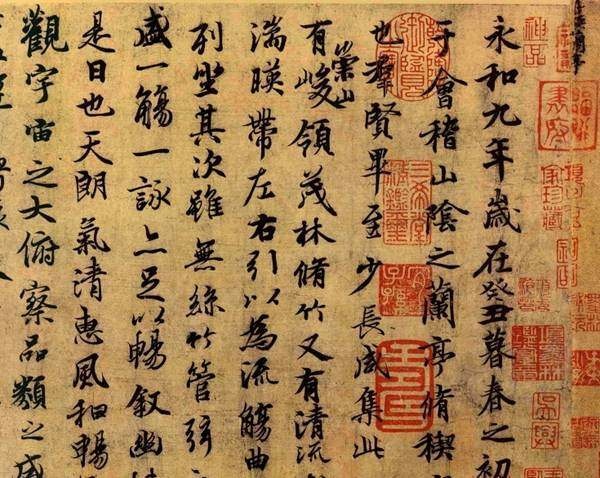 永和九年歲在癸丑暮春之初
于會稽山陰之蘭亭脩稧
也羣賢畢至少長咸集此
有崇山峻領茂林脩竹又有清流
湍暎帶左右引以為流觴曲
列坐其次雖無絲竹管弦
盛一觴一詠亦足以暢敘幽
是日也天朗氣清惠風和暢
觀宇宙之大俯察品類之盛
神品